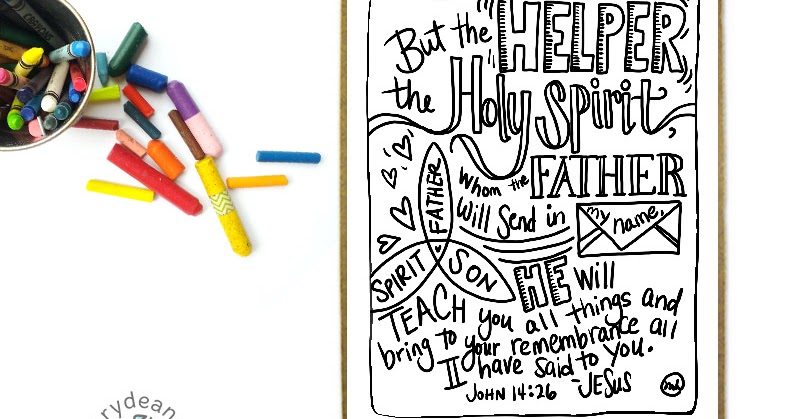 "But the "HELPER,
the Holy Spirit,
whom the FATHER
will Send in my name,
FATHER
SPIRIT SON
HE will
TEACH you all things and
bring to your remembrance all
I have said to you."
JOHN 14:26 -JESUS
rydean